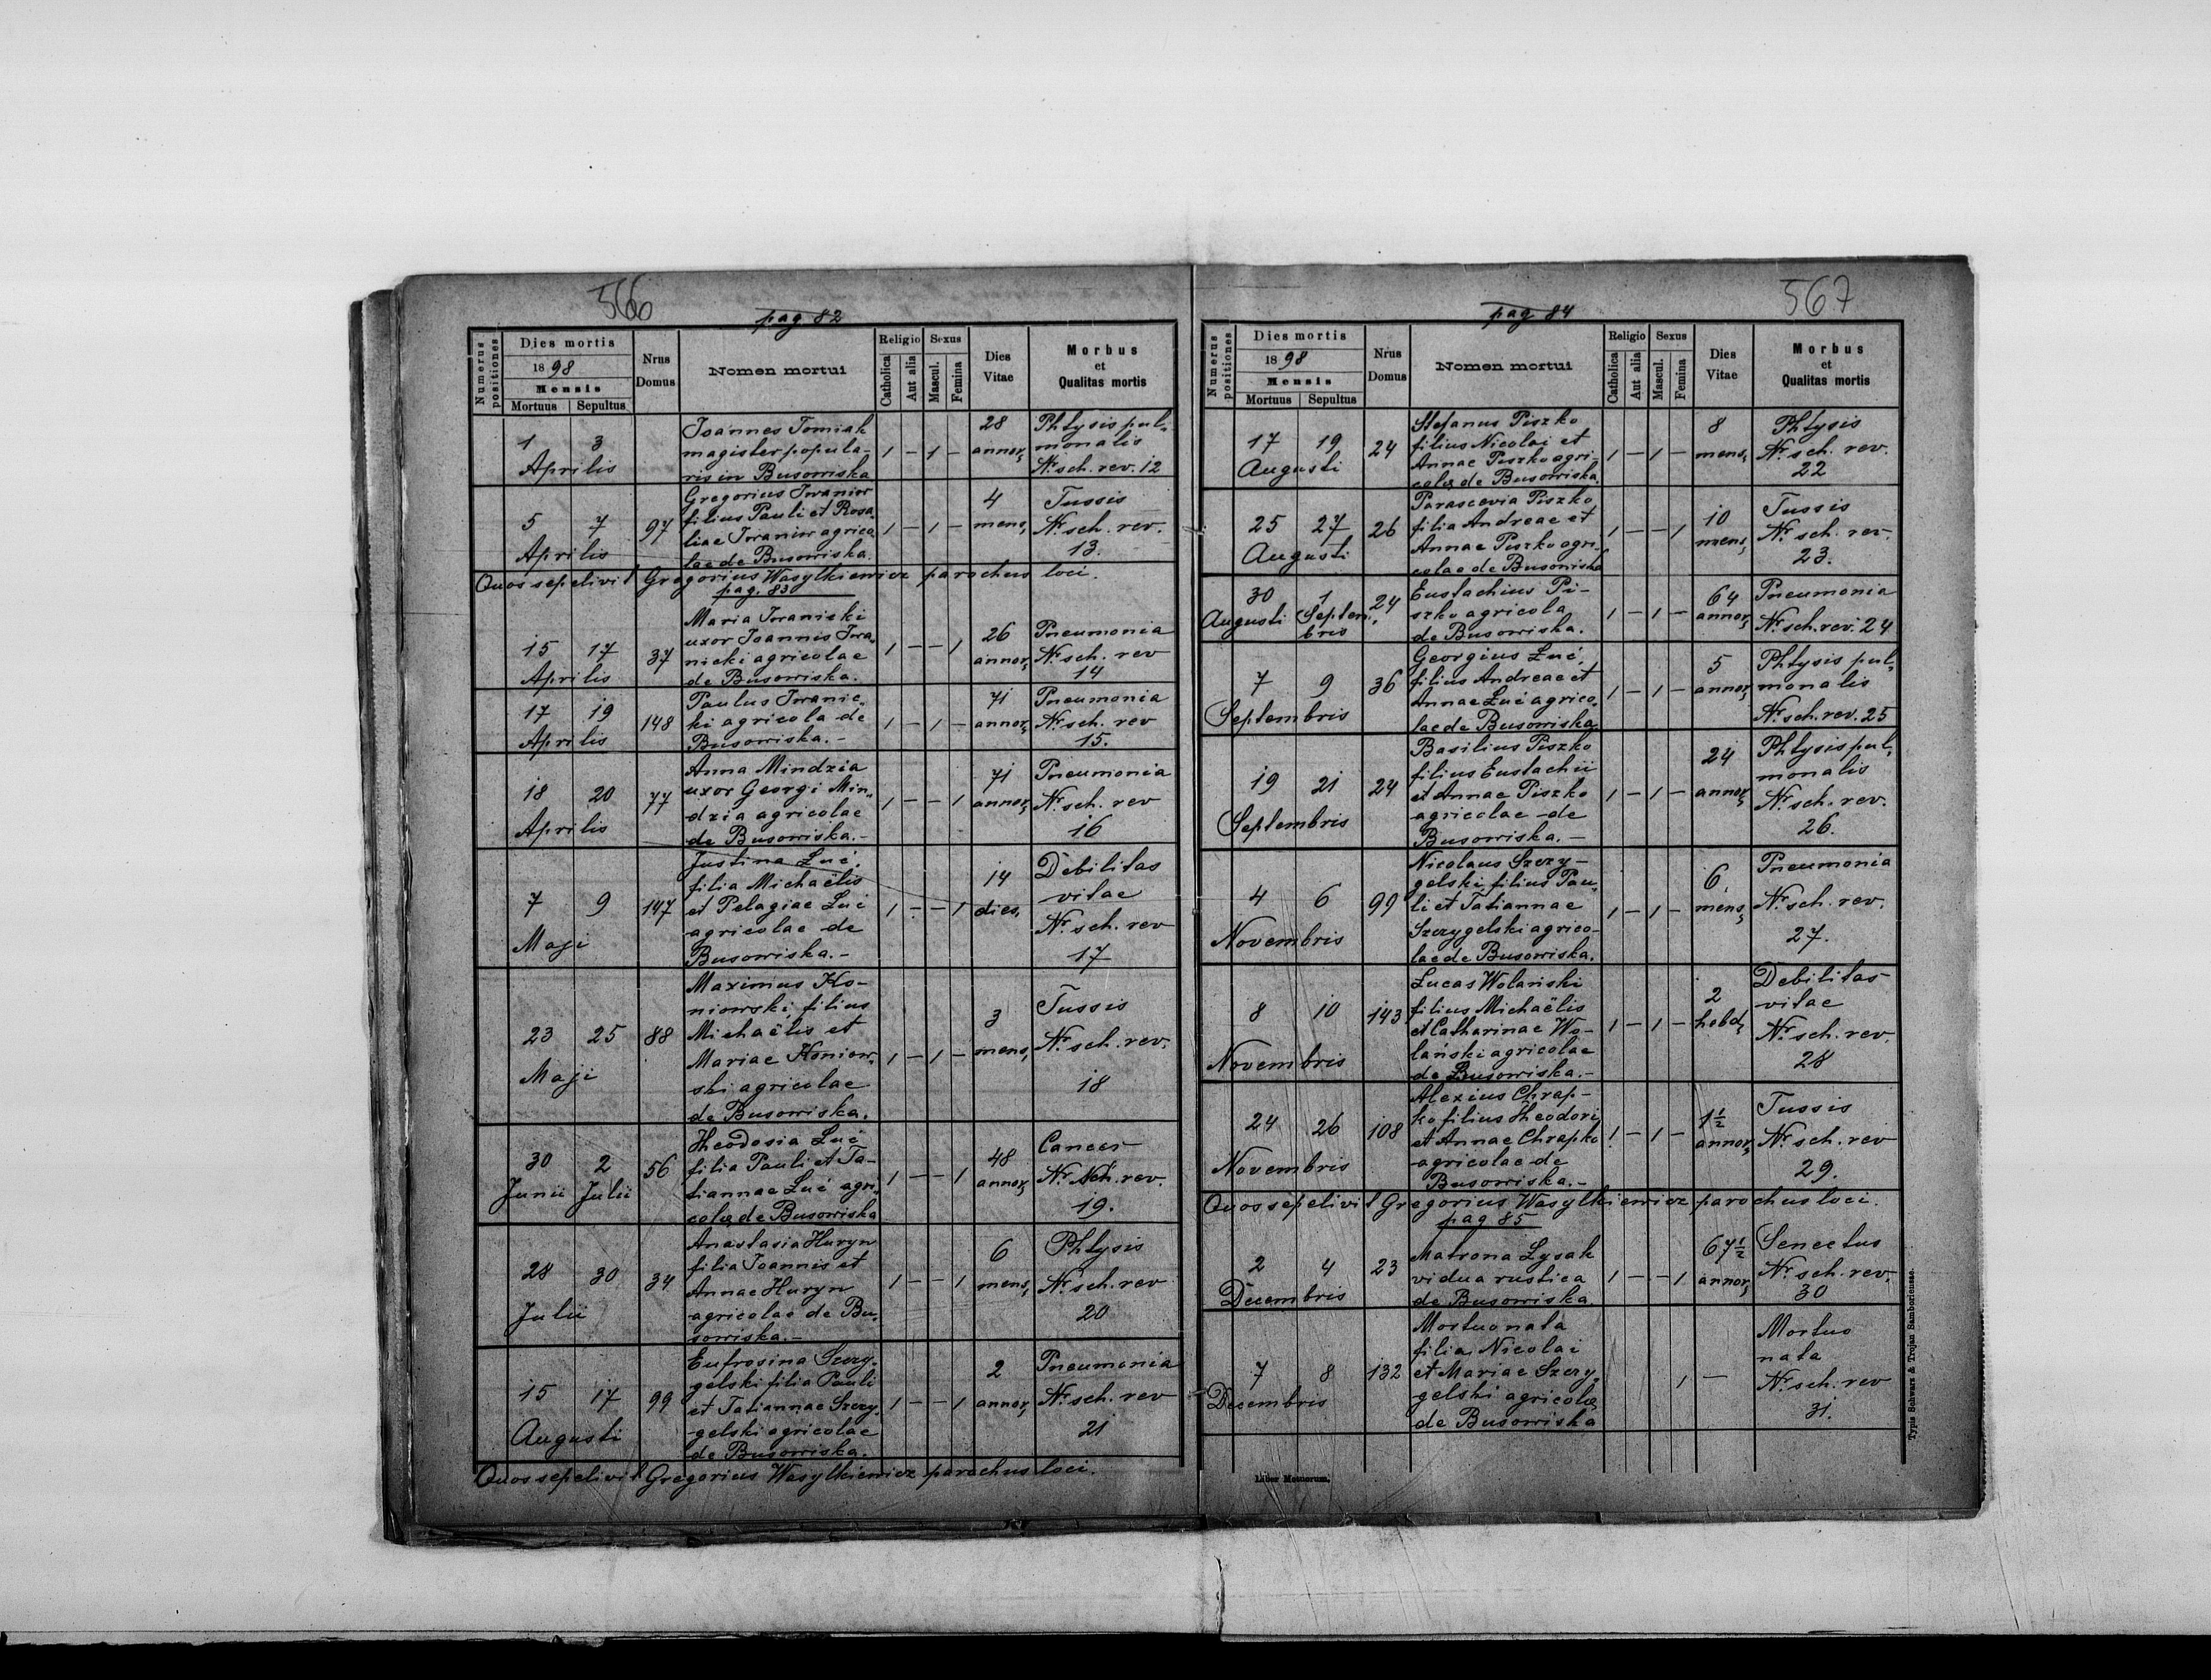 566
pag 82
Numerus positiones
Dies mortis
1898
Mensis
Mortuus Sepultus
Nrus Domus
Nomen mortui
Religio
Catholica
Aut alia
Sexus
Mascul.
Femina
Dies Vitae
Morbus
et
Qualitas mortis
1 3
Aprilis
Joannes Tomiak
magister popula-
ris in Busowiska
1 – 1 –
28
annor,
Phtysis pul„
monalis
Nr. sch. rev. 12
5 7
Aprilis
97
Gregorius Iwaniw
filius Pauli et Rosa„
liae Iwaniw agrico„
lae de Busowiska.
1 – 1 –
4
mens,
Tussis
Nr. sch. rev.
13.
Quos sepelivit Gregorius Wasylkiewicz parochus loci.
pag. 83
15 17
Aprilis
37
Maria Iwanicki
uxor Joannis Iwa„
nicki agricolae
de Busowiska.
1 – – 1
26
annor,
Pneumonia
Nr. sch. rev
14
17 19
Aprilis
148
Paulus Iwanic„
ki agricola de
Busowiska. –
1 – 1 –
71
annor,
Pneumonia
Nr. sch. rev
15.
18 20
Aprilis
77
Anna Mindzia
uxor Georgi Min„
dzia agricolae
de Busowiska. –
1 – – 1
71
annor,
Pneumonia
Nr. sch. rev
16
7 9
Maji
147
Justina Luć,
filia Michaëlis
et Pelagiae Luć
agricolae de
Busowiska. –
1 – – 1
14
dies,
Debilitas
vitae
Nr. sch. rev
17
23 25
Maji
88
Maximus Ho-
niowski, filius
Michaëlis et
Mariae Honiow„
ski agricolae
de Busowiska.
1 – 1 –
3
mens,
Tussis
Nr. sch. rev.
18
30 2
Junii Julii
56
Theodosia Luć
filia Pauli et Ta-
tiannae Luć agri„
colae de Busowiska
1 – – 1
48
annor,
Cancer
Nr. sch. rev.
19.
28 30
Julii
34
Anastasia Huryn
filia Joannis et
Annae Huryn
agricolae de Bu„
sowiska. –
1 – – 1
6
mens,
Phtysis
Nr. sch. rev
20
15 17
Augusti
99
Eufrosina Szczy„
gelski filia Pauli
et Tatiannae Szczy„
gelski agricolae
de Busowiska.
1 – – 1
2
annor,
Pneumonia
Nr. sch. rev
21
Quos sepelivit Gregorius Wasylkiewicz parochus loci.
567
pag 84
Numerus positiones
Dies mortis
1898
Mensis
Mortuus Sepultus
Nrus Domus
Nomen mortui
Religio
Catholica
Aut alia
Sexus
Mascul.
Femina
Dies Vitae
Morbus
et
Qualitas mortis
17 19
Augusti
24
Stefanus Piszko
filius Nicolai et
Annae Piszko agri-
colae de Busowiska.
1 – 1 –
8
mens,
Phtysis
Nr. sch. rev.
22
25 27
Augusti
26
Parascevia Piszko
filia Andreae et
Annae Piszko agri-
colae de Busowiska
1 – – 1
10
mens,
Tussis
Nr. sch. rev.
23.
30 1
Augusti Septem„
bris
24
Eustachius Pi-
szko agricola
de Busowiska.
1 – 1 –
64
annor,
Pneumonia
Nr. sch. rev. 24
7 9
Septembris
36
Georgius Luć,
filius Andreae et
Annae Luć agrico„
lae de Busowiska.
1 – 1 –
5
annor,
Phtysis pul„
monalis
Nr. sch. rev. 25
19 21
Septembris
24
Basilius Piszko
filius Eustachii
et Annae Piszko
agricolae de
Busowiska. –
1 – 1 –
24
annor,
Phtysis pul„
monalis
Nr. sch. rev.
26.
4 6
Novembris
99
Nicolaus Szczy-
gelski filius Pau„
li et Tatiannae
Szczygelski agrico-
lae de Busowiska.
1 – 1 –
6
mens,
Pneumonia
Nr. sch. rev.
27.
8 10
Novembris
143
Lucas Wolański
filius Michaëlis
et Catharinae Wo-
lański agricolae
de Busowiska. –
1 – 1 –
2
hebd,
Debilitas
vitae
Nr. sch. rev.
28
24 26
Novembris
108
Alexius Chrap-
ko filius Theodori
et Annae Chrapko
agricolae de
Busowiska. –
1 – 1 –
1½
annor,
Tussis
Nr. sch. rev
29.
Quos sepelivit Gregorius Wasylkiewicz parochus loci.
pag 85
2 4
Decembris
23
Matrona Lysak
vidua rustica
de Busowiska.
1 – – 1
67½
annor,
Senectus
Nr. sch. rev.
30
7 8
Decembris
132
Mortuo nata
filia Nicolai
et Mariae Szczy„
gelski agricolae
de Busowiska
1 –
Mortuo
nata
Nr. sch. rev
31.
Liber Motuorum.
Typis Schwarz & Trojan Samboriensae.